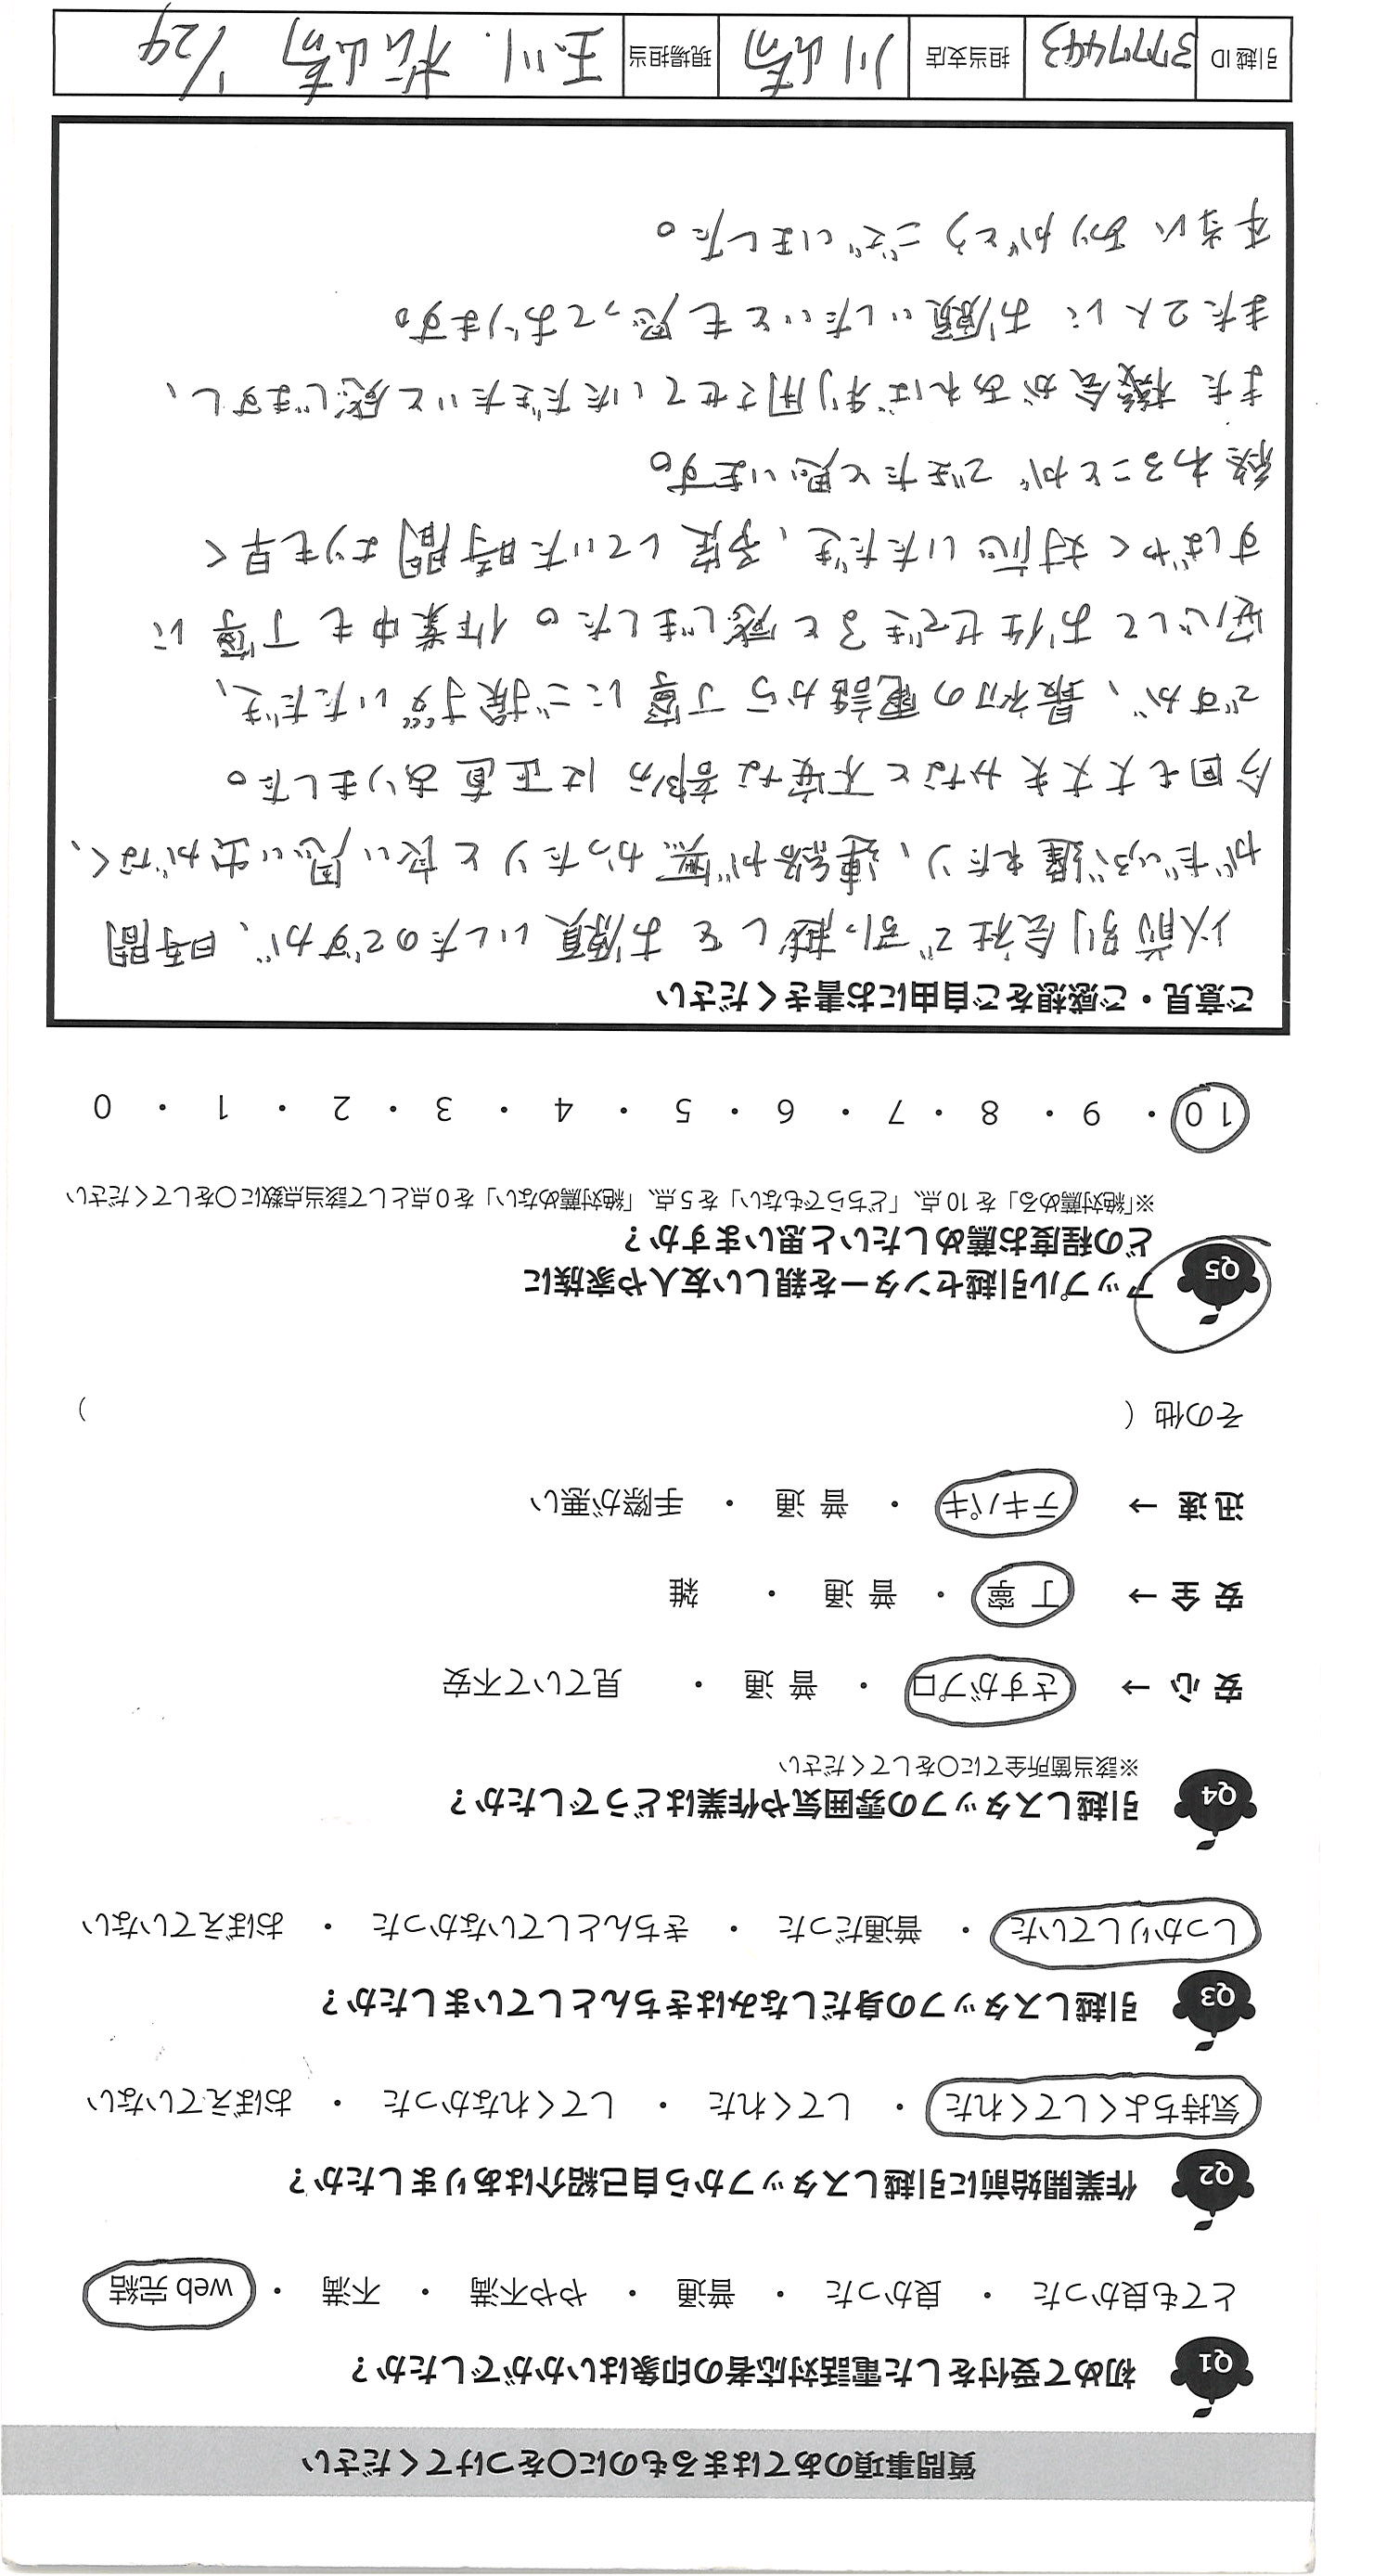 質問事項のあてはまるものに○をつけてください
Q1 初めて受付をした電話対応者の印象はいかがでしたか？
とても良かった ・ 良かった ・ 普通 ・ やや不満 ・ 不満 ・ web 完結
Q2 作業開始前に引越しスタッフから自己紹介はありましたか？
気持ちよくしてくれた ・ してくれた ・ してくれなかった ・ おぼえていない
Q3 引越しスタッフの身だしなみはきちんとしていましたか？
しっかりしていた ・ 普通だった ・ きちんとしていなかった ・ おぼえていない
Q4 引越しスタッフの雰囲気や作業はどうでしたか？
※該当箇所全てに○をしてください
安 心 → さすがプロ ・ 普 通 ・ 見ていて不安
安 全 → 丁 寧 ・ 普 通 ・ 雑
迅 速 → テキパキ ・ 普 通 ・ 手際が悪い
その他（ ）
Q5 アップル引越センターを親しい友人や家族に
どの程度お薦めしたいと思いますか？
※「絶対薦める」を 10 点、「どちらでもない」を 5 点、「絶対薦めない」を 0 点として該当点数に○をしてください
10 ・ 9 ・ 8 ・ 7 ・ 6 ・ 5 ・ 4 ・ 3 ・ 2 ・ 1 ・ 0
ご意見・ご感想をご自由にお書きください
以前別会社で引っ越しをお願いしたのですが、時間
がだいぶ遅れたり、連絡が無かったりと良い思い出がなく、
今回も大丈夫かなと不安な部分は正直ありました。
ですが、最初の電話から丁寧にご挨拶いただき、
安心してお任せできると感じました。作業中も丁寧に
すばやく対応いただき、予定していた時間よりも早く
終わることができたと思います。
また機会があれば利用させていただきたいと感じますし、
また2人にお願いしたいとも思っております。
本当にありがとうございました。
引越 ID 3777443 担当支店 川崎 現場担当 玉川. 松山崎 1/29